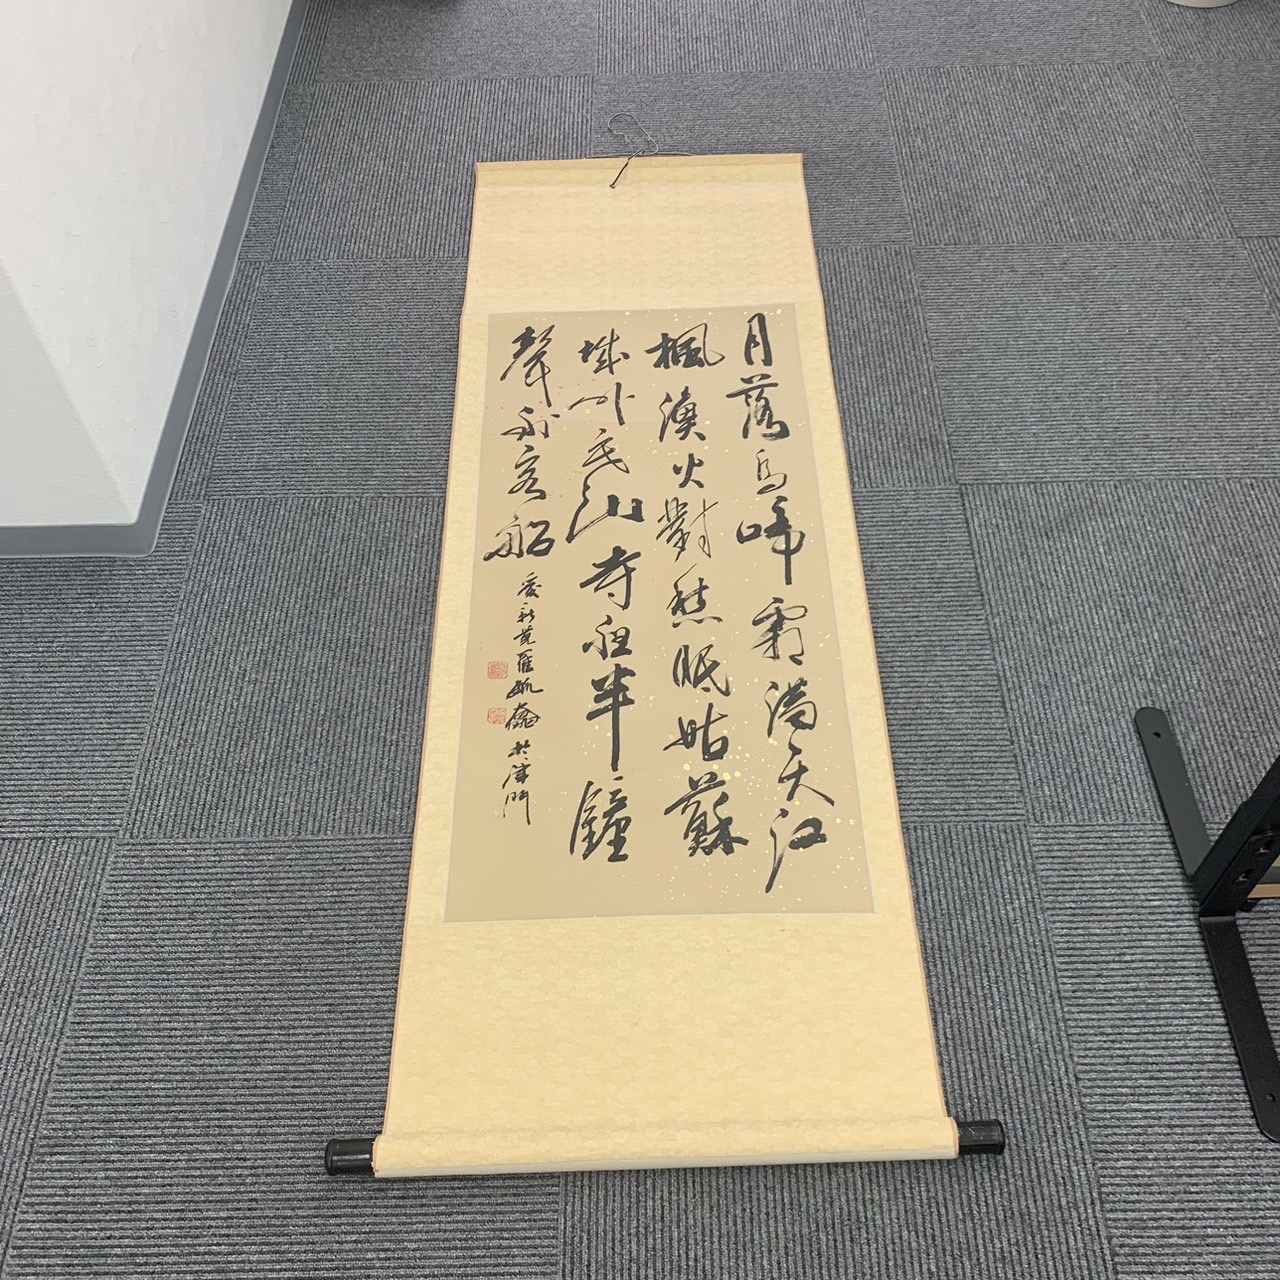 月落烏啼霜滿天江
楓漁火對愁眠姑蘇
城外寒山寺夜半鐘
聲到客船
愛新覺羅毓於津門